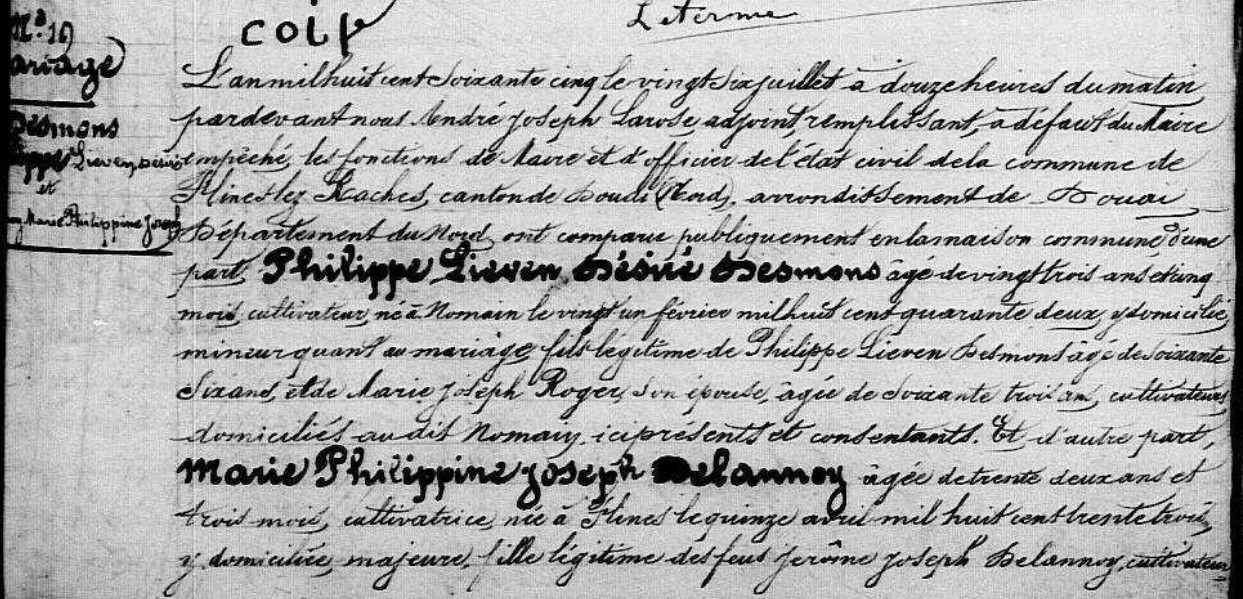 N.º 19
Mariage
Desmons
Philippe Lieven, Désiré
et
Marie Philippine Joseph
L'an mil huit cent soixante cinq le vingt six juillet à douze heures du matin
pardevant nous André Joseph Larose, adjoint, remplissant, à défaut du Maire
empêché, les fonctions de Maire et d'officier de l'état civil de la commune de
Flines lez Raches, canton de Douai (Nord), arrondissement de Douai
Département du Nord, ont comparu publiquement en la maison commune d'une
part, Philippe Lieven Désiré Desmons âgé de vingt trois ans et cinq
mois, cultivateur, né à Nomain le vingt un février mil huit cent quarante deux, y domicilié,
mineur quant au mariage, fils légitime de Philippe Lieven Desmons âgé de soixante
six ans, et de Marie Joseph Roger, son épouse, âgée de soixante trois ans, cultivateurs,
domiciliés au dit Nomain, ici présents et consentants. Et d'autre part,
Marie Philippine Joseph Delannoy âgée de trente deux ans et
trois mois, cultivatrice, née à Flines le quinze avril mil huit cent trente trois,
y domiciliée, majeure, fille légitime des feus Jerôme Joseph Delannoy, cultivateur